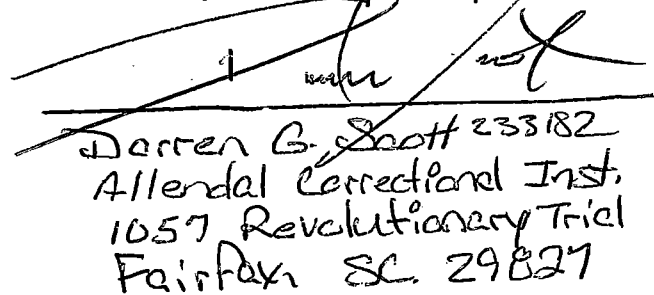 Darren G. Scott 233182
Allendal Correctional Inst.
1057 Revolutionary Trial
Fairfax, SC. 29827